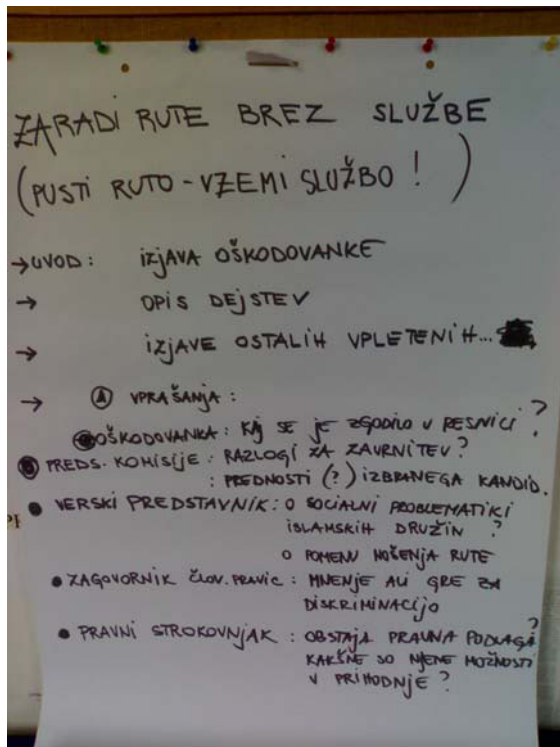 ZARADI RUTE BREZ SLUŽBE
(PUSTI RUTO - VZEMI SLUŽBO! )
→ UVOD: IZJAVA OŠKODOVANKE
→ OPIS DEJSTEV
→ IZJAVE OSTALIH VPLETENIH...
→ Ⓐ VPRAŠANJA:
OŠKODOVANKA: KAJ SE JE ZGODILO V RESNICI?
PREDS. KOMISIJE: RAZLOGI ZA ZAVRNITEV?
: PREDNOSTI (?) IZBRANEGA KANDID.
• VERSKI PREDSTAVNIK: O SOCIALNI PROBLEMATIKI
ISLAMSKIH DRUŽIN ?
O POMENU NOŠENJA RUTE
• ZAGOVORNIK ČLOV. PRAVIC: MNENJE ALI GRE ZA
DISKRIMINACIJO
• PRAVNI STROKOVNJAK: OBSTAJA PRAVNA PODLAGA?
KAKŠNE SO NJENE MOŽNOSTI
V PRIHODNJE?